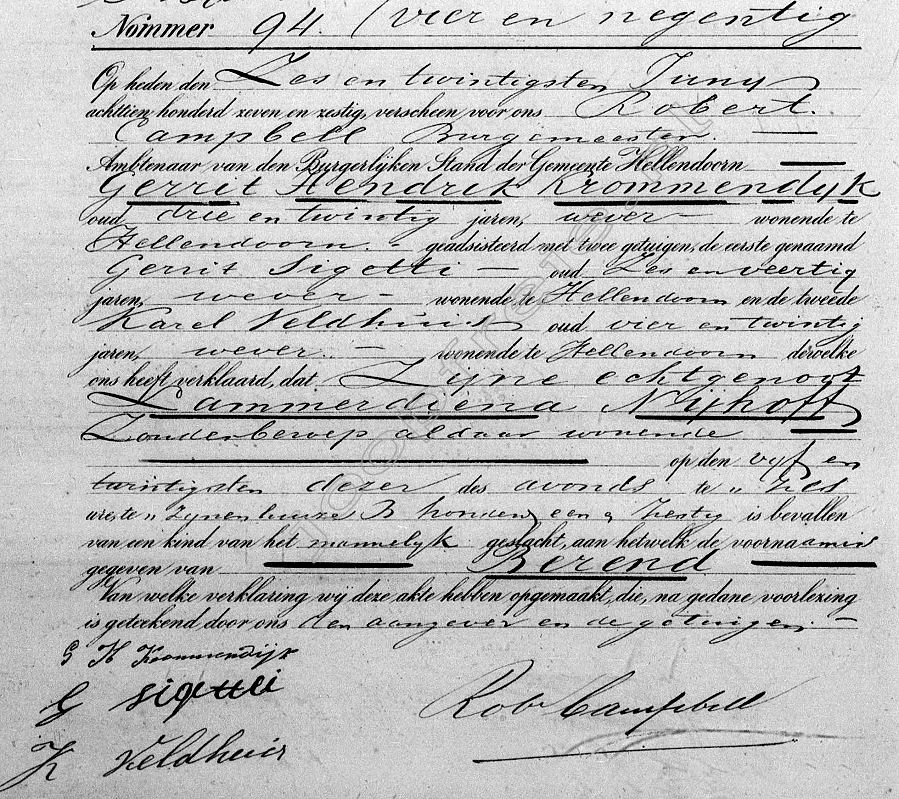 Nommer 94. (vier en negentig
Op heden den Zes en twintigsten Juny
achttien honderd zeven en zestig, verscheen voor ons Robert
Campbell Burgemeester
Ambtenaar van den Burgerlijken Stand der Gemeente Hellendoorn
Gerrit Hendrik Krommendyk
oud drie en twintig jaren, wever wonende te
Hellendoorn geadsisteerd met twee getuigen, de eerste genaamd
Gerrit Sigotti oud Zes en veertig
jaren, wever wonende te Hellendoorn en de tweede
Karel Veldhuis oud vier en twintig
jaren, wever wonende te Hellendoorn dewelke
ons heeft verklaard, dat Zyne echtgenoot
Lammerdiena Nijhoff
Zonder beroep aldaar wonende
op den vyf en
twintigsten dezer des avonds te Zes
ure te Zynen huize B honderd een & Zestig is bevallen
van een kind van het mannelyk geslacht, aan hetwelk de voornaamin
gegeven van Berend
Van welke verklaring wij deze akte hebben opgemaakt, die, na gedane voorlezing
is geteekend door ons den aangever en de getuigen.
G H Krommendijk
G Sigotti
Rob Campbell
K Veldhuis